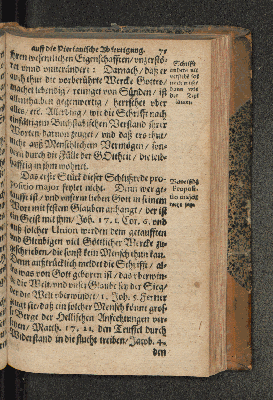 auff die Pierianische Abfertigung. 71
ihren wesentlichen Eigenschafften / unzerstö-
ret unnd unverändert: Darnach / daß er
doch thut die vorberührte Wercke Gottes /
machet lebendig / reiniget von Sünden / ist
allenthalben gegenwertig / herrschet uber
alles / etc. Allerding / wie die Schrifft nach
Buchstabischen Verstand ihrer
Worten davon zeuget / und daß ers thut
nicht auß Menschlichem Vermögen / son-
dern durch die Fülle der GOttheit / die leib-
hafftig in ihm wohnet.
Das erste Stück dieser Schlußrede pro-
positio major fehlet nicht. Denn wer ge-
taufft ist / und unserm lieben Gott in seinem
Wort mit festem Glauben anhangt / der ist
ein Geist mit ihm / Joh. 17. 1. Cor. 6. und
auß solcher Union werden dem getaufften
und Gleubigen viel Göttlicher Wercke zu-
geschrieben / die sonst kein Mensch thun kan.
Denn außtrücklich meldet die Schrifft / al-
les was von Gott geboren ist / das uberwin-
det die Welt / und unser Glaube ist der Sieg /
der die Welt uberwindet / 1. Joh. 5. Ferner
zeuget sie / daß ein solcher Mensch könne gros-
se Berge der Hellischen Anfechtungen ver-
setzen / Matth. 17. 21. den Teuffel durch
Widerstand in die flucht treiben / Jacob. 4.
den
Propositio
major